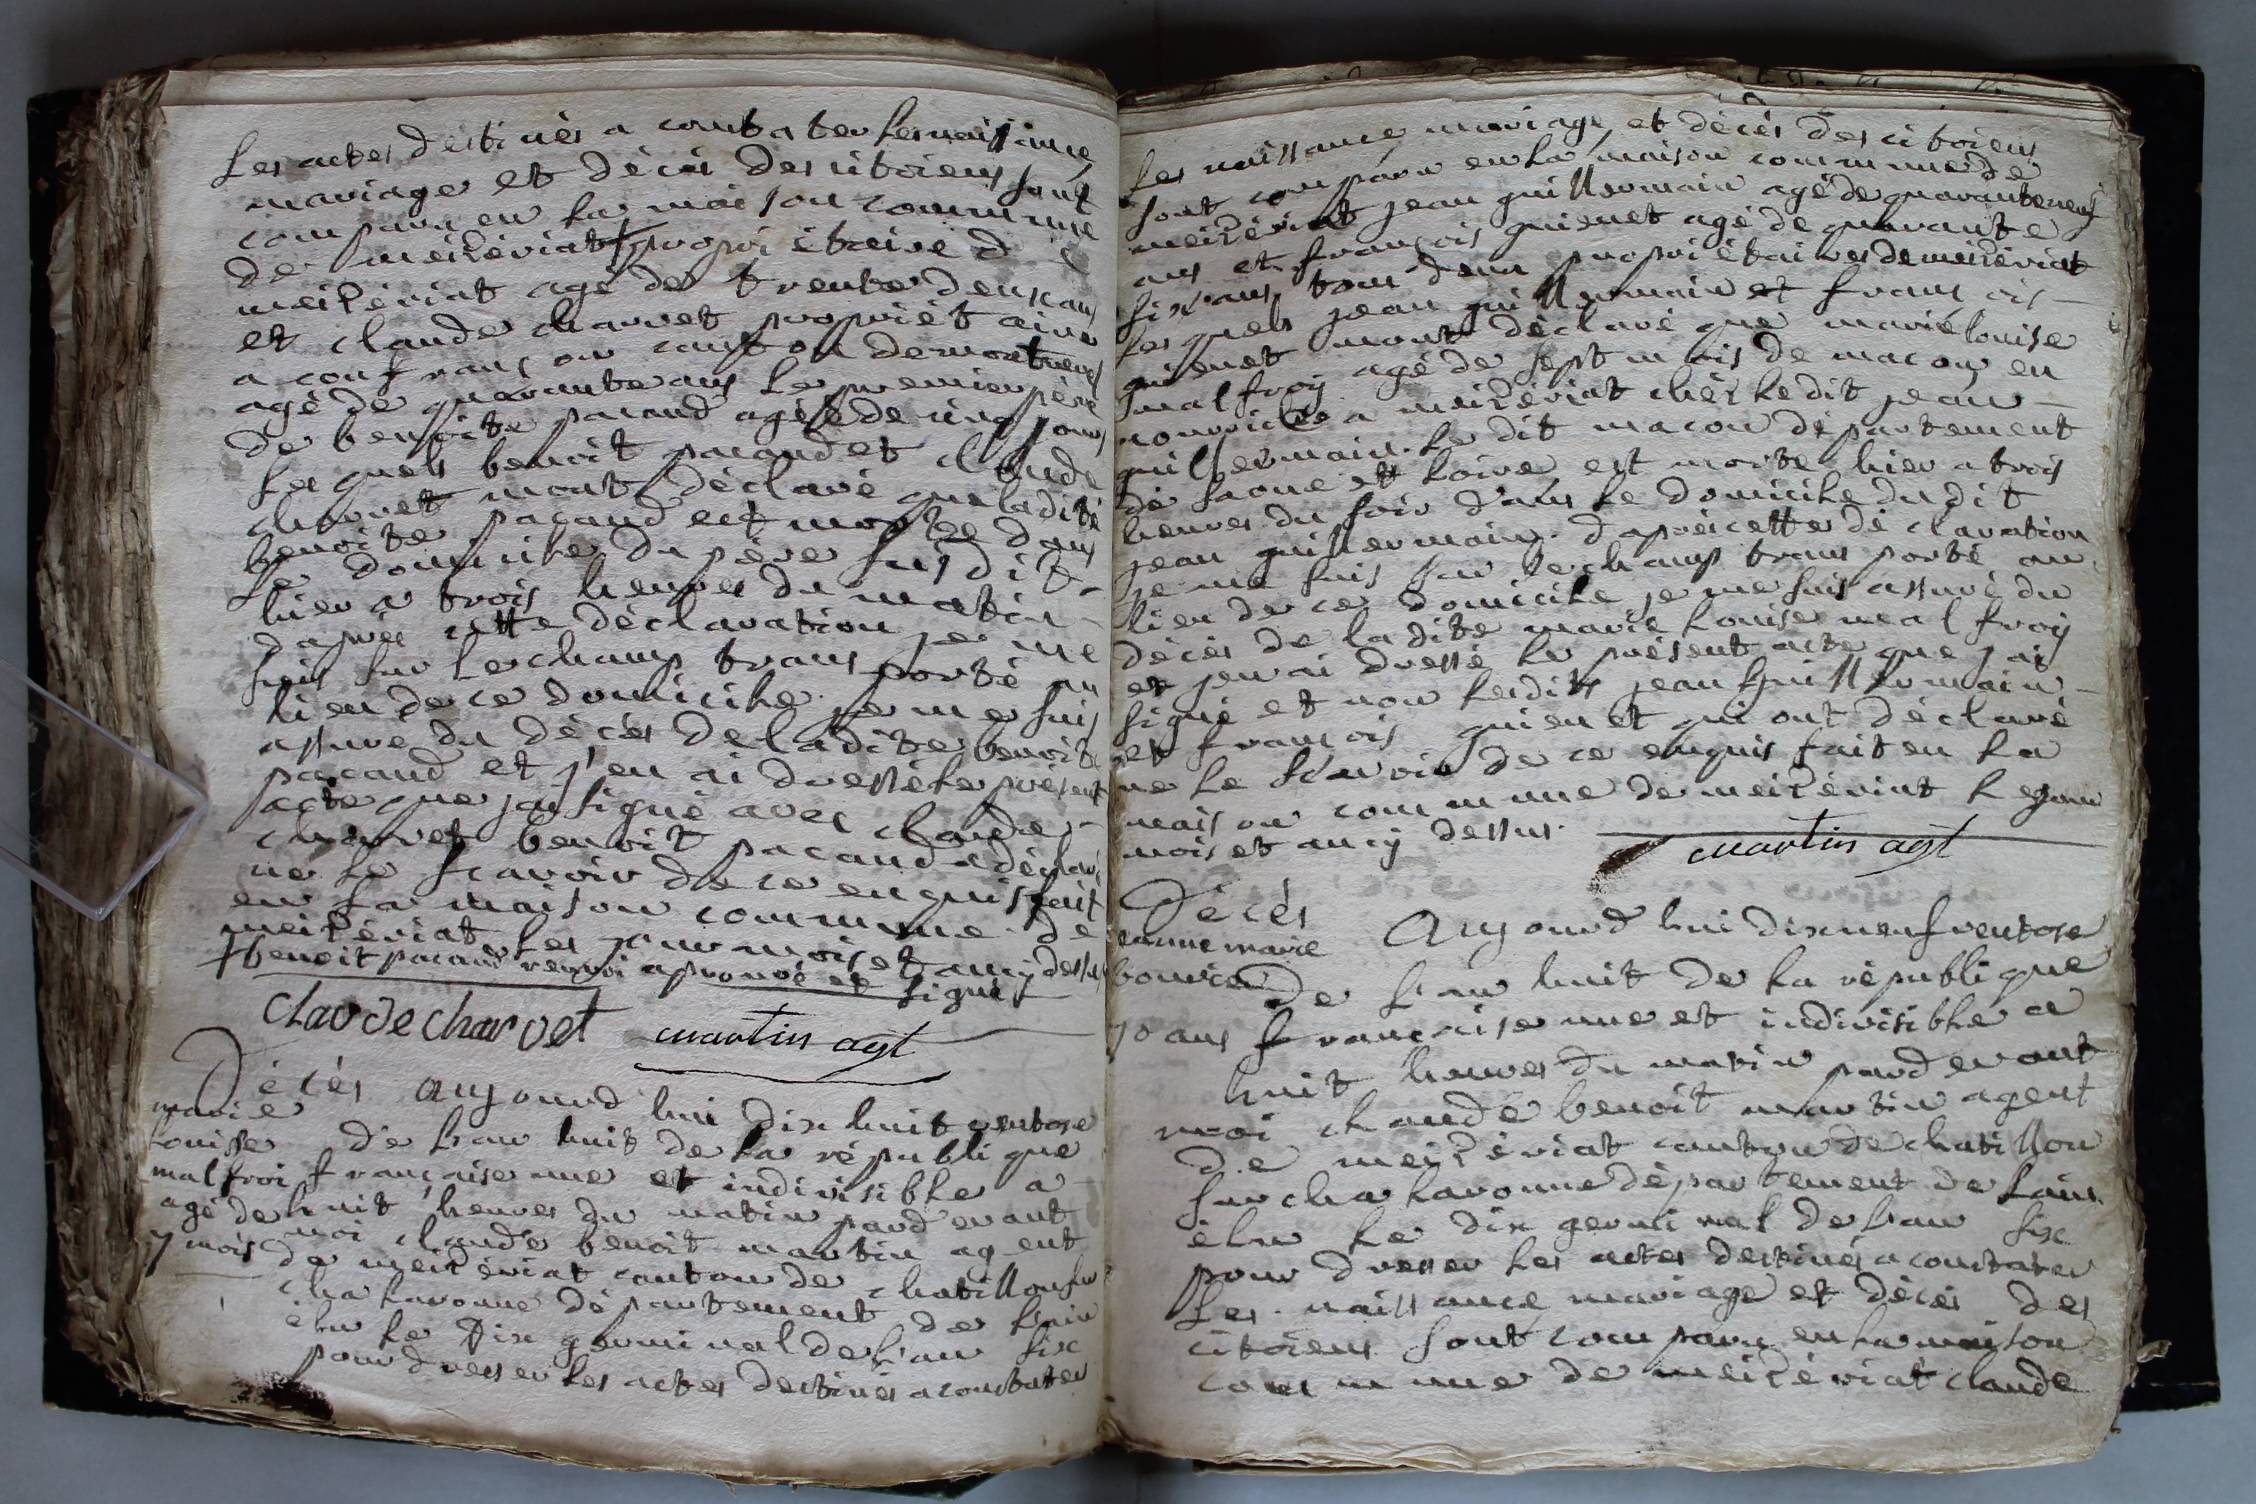 les actes destinés a constater les naissance
mariage et décès des citoiens sont
comparu en la maison commune
de meizériat ƒ propriétaire d
meizériat agé de trente deux ans
et claude charvet propriétaire
a confrançon canton de montrevel
agé de quarante ans le premier père
de benoite pacaud agée de cinq jours
lesquels benoit pacaud et claude
charvet mont déclaré que ladite
benoite pacaud est morte dans
le domicile du père susdit
hier a trois heures du matin
daprès cette déclaration je me
suis sur le champ transporté au
lieu de ce domicile je me suis
assuré du décès de ladite benoite
pacaud et j'en ai dressé le présent
acte que jai signé avec claude
charvet benoit pacaud a déclaré
ne le scavoir de ce enquis fait
en la maison commune de
meizériat les jour mois et an cy dessus
ƒ benoit pacaud renvoi aprouvé et signé
claude charvet martin agt
Décès aujourd hui dix huit ventose
marie
louisse de l'an huit de la république
malfroi française une et indivisible a
agé de huit heures du matin pardevant
7 mois moi claude benoit martin agent
de meizériat canton de chatillon sur
chalaronne département de l'ain
élu le dix germinal de l'an six
pour dresser les actes destinés a constater
les naissance mariage et décès des citoiens
sont comparu en la maison commune de
meizériat jean guillermain agé de quarante neuf
ans et françois guienet agé de quarante
six ans tout deux propriétaires de meizériat
lesquels jean guillermain et françois
guienet mont déclaré que marie louise
malfroy agé de sept mois de macon en
nourrice a meizériat chés ledit jean
guillermain. le dit macon département
de saone et loire est morte hier a trois
heures du soir dans le domicile du dit
jean guillermain. daprès cette déclaration
je me suis sur le champ transporté au
lieu de ce domicile je me suis assuré du
décès de la dite marie louise malfroy
et jen ai dressé le présent acte que jai
signé et non lesdits jean guillermain
et françois guienet qui ont déclaré
ne le scavoir de ce enquis fait en la
maison commune de meizériat le jour
mois et an cy dessus.
martin agt
Décès
marie aujourd hui dix neuf ventose
de l'an huit de la république
70 ans française une et indivisible a
huit heures du matin pardevant
moi claude benoit martin agent
de meizériat canton de chatillon
sur chalaronne département de lain
élu le dix germinal de l'an six
pour dresser les actes destinés a constater
les naissance mariage et décès des
citoiens sont comparu en la maison
commune de meizériat claude